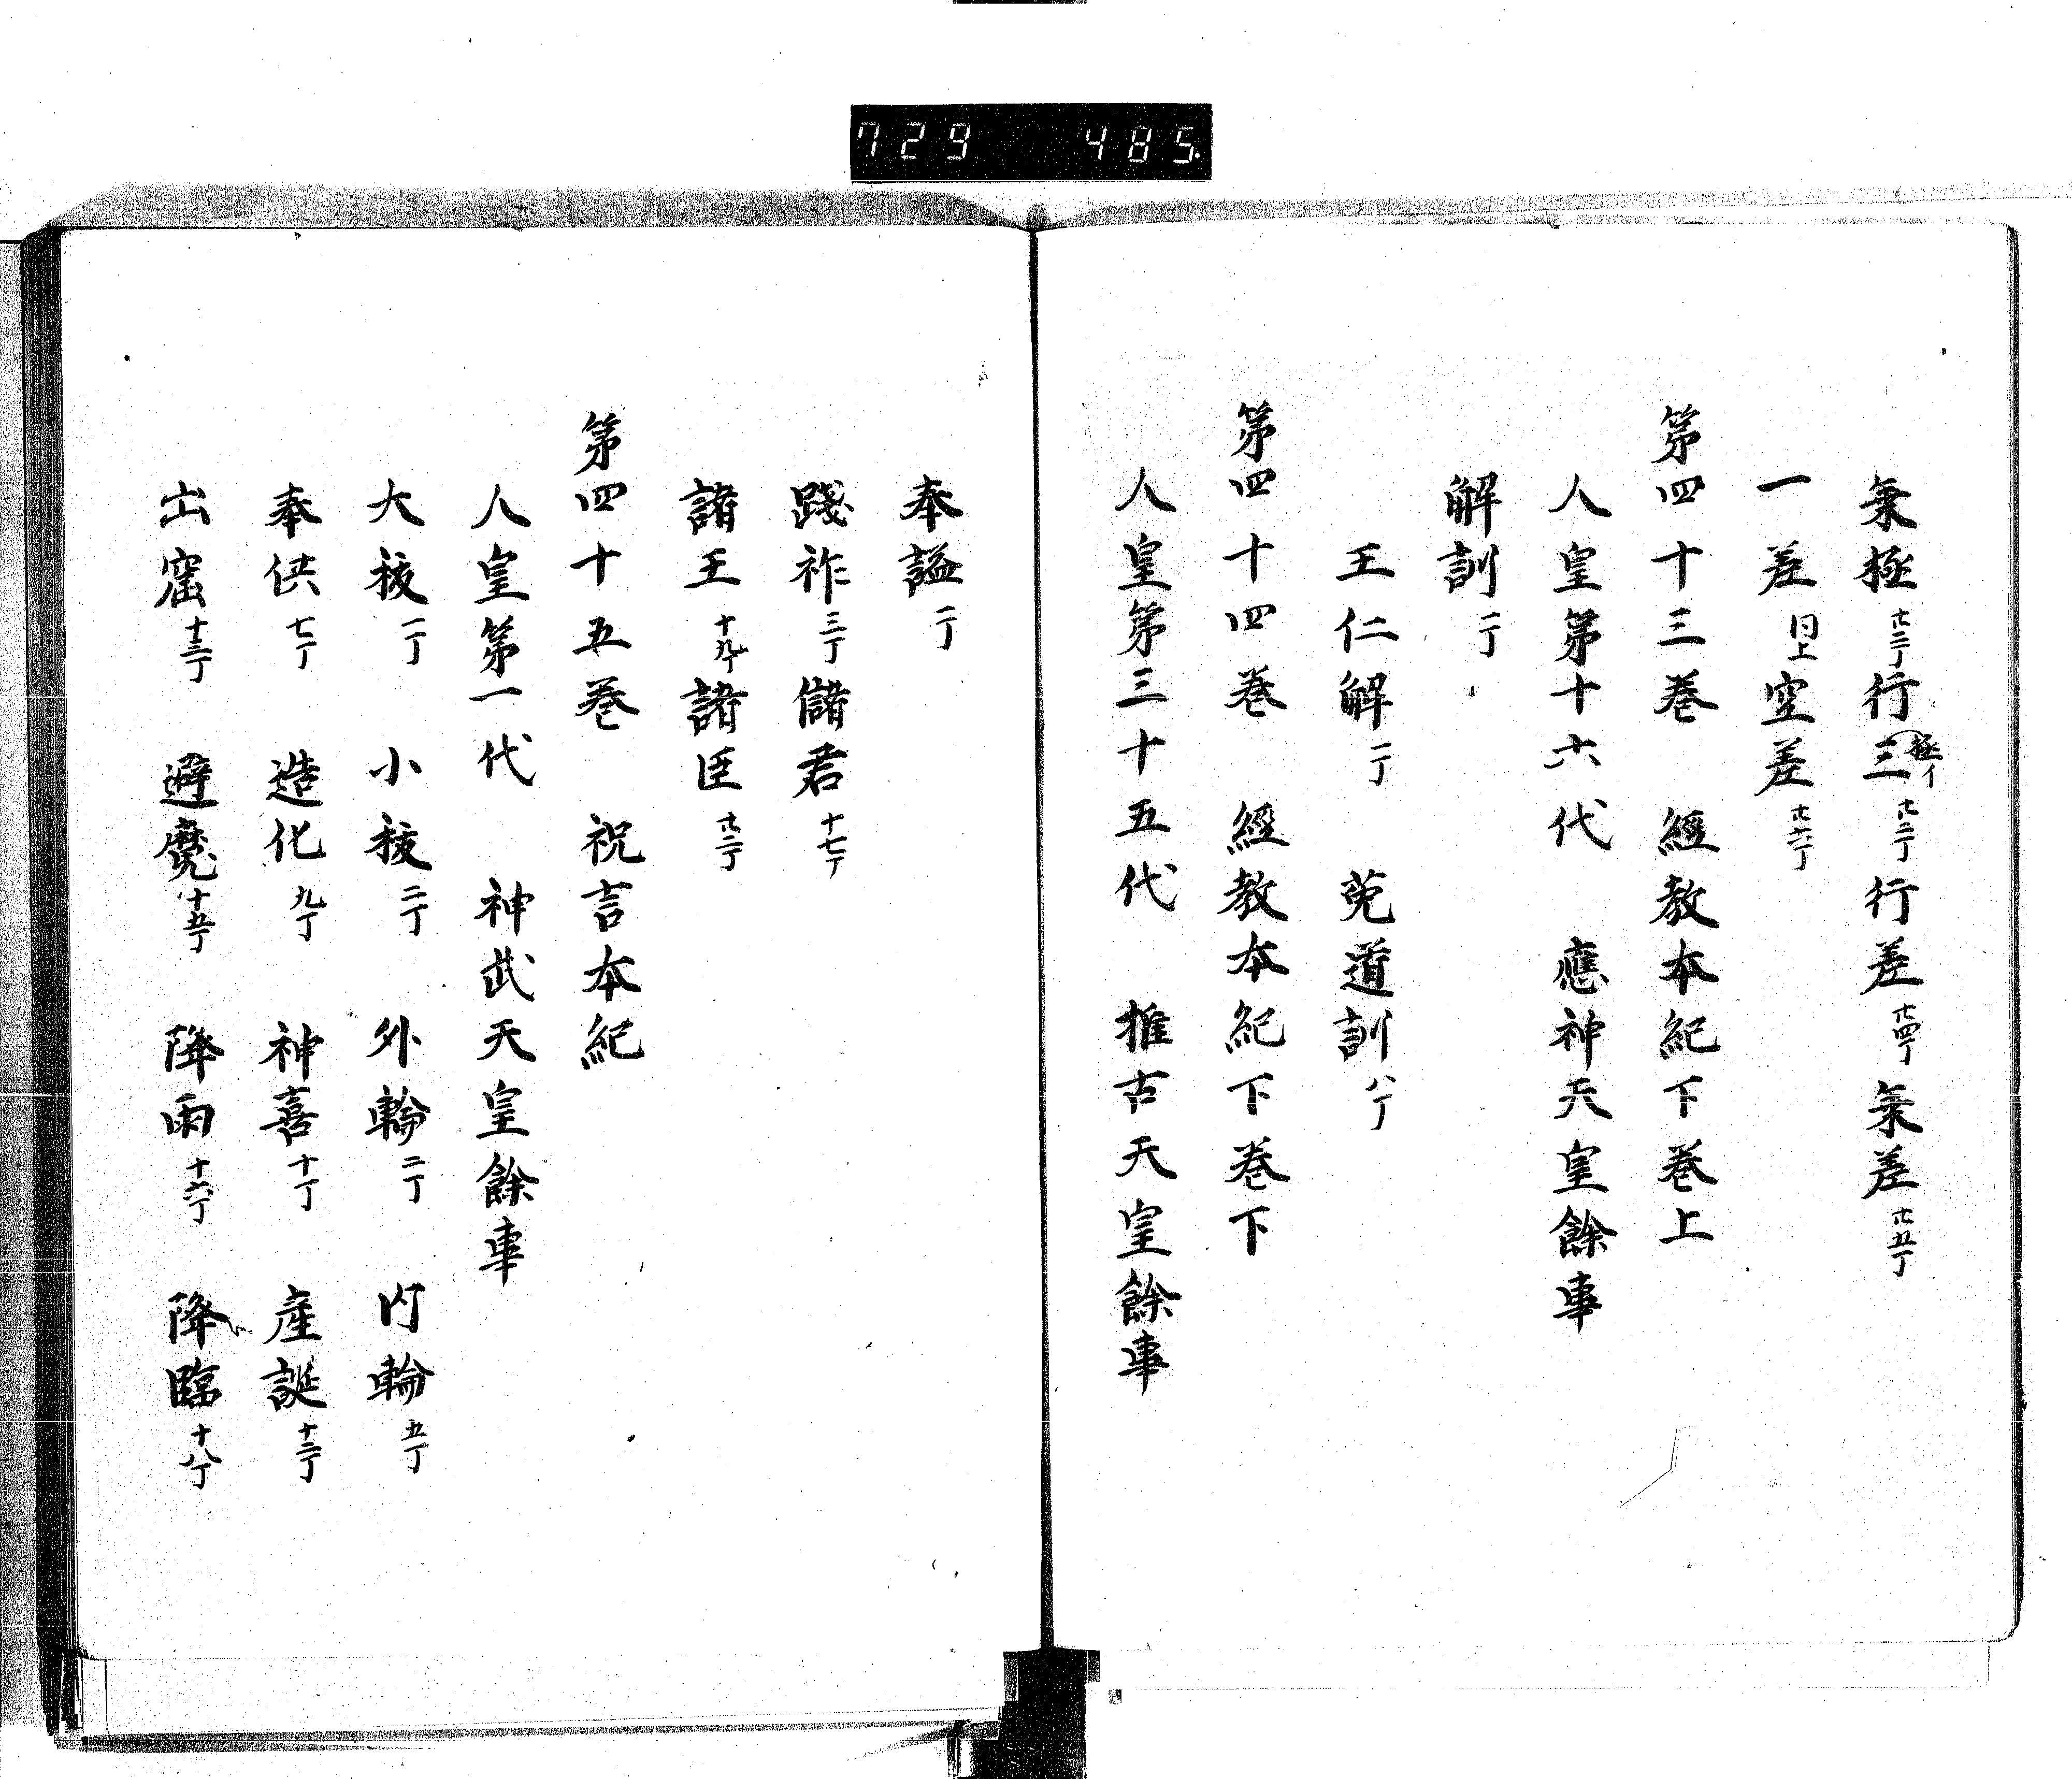 729 485
㐪極 廿二丁 行三 極イ 廿二丁 行差 廿四丁 㐪差 廿五丁
一差 同上 空差 廿六丁
第四十三巻 經教本紀下巻上
人皇第十六代 應神天皇餘事
解訓 一丁
王仁解 一丁 莵道訓 八丁
第四十四巻 經教本紀下巻下
人皇第三十五代 推古天皇餘事
奉謚 一丁
踐祚 三丁 儲君 十七丁
諸王 十九丁 諸臣 廿二丁
第四十五巻 祝言本紀
人皇第一代 神武天皇餘事
大祓 一丁 小祓 二丁 外輪 二丁 内輪 五丁
奉供 七丁 造化 九丁 神喜 十丁 産誕 十二丁
出窟 十三丁 避魔 十五丁 降雨 十六丁 降臨 十八丁